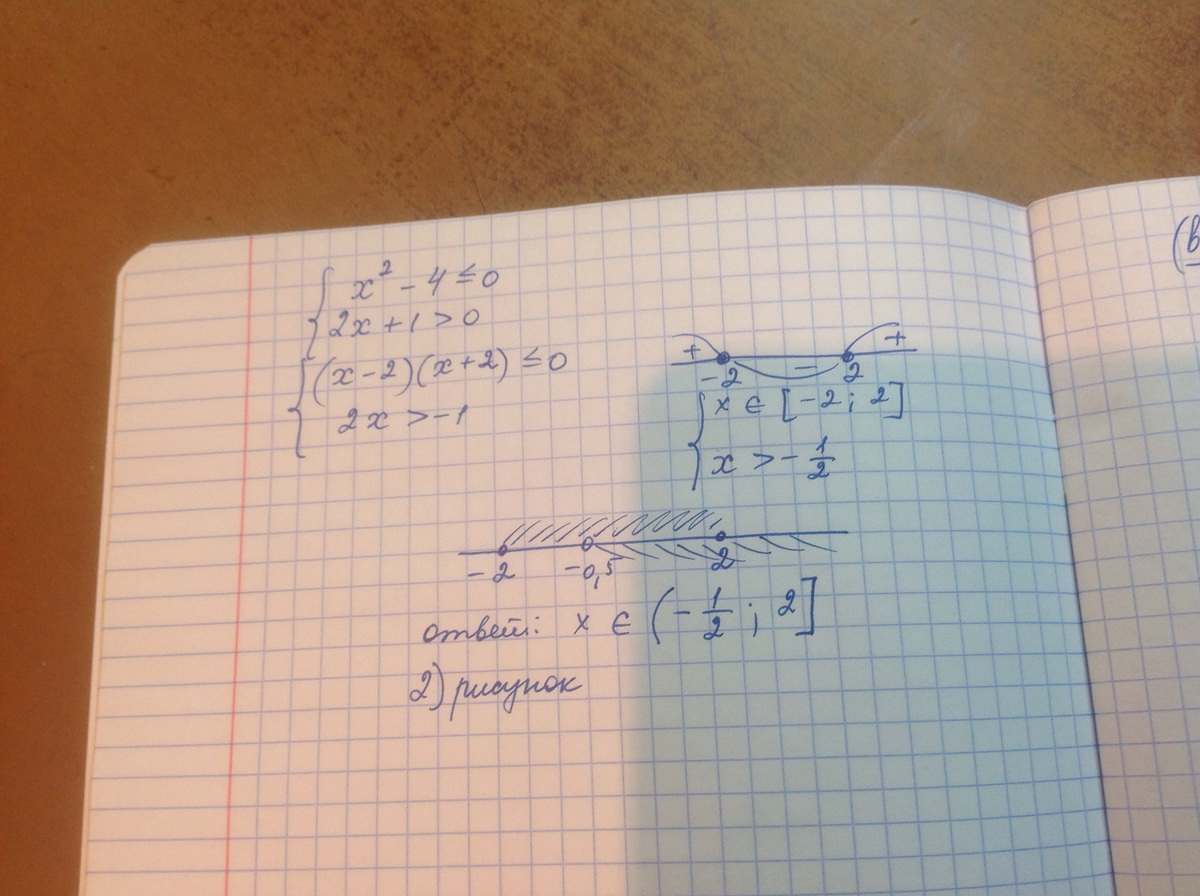 x² - 4 ≤ 0
2x + 1 > 0
(x-2)(x+2) ≤ 0
2x > -1
+ - +
-2 2
x ∈ [-2; 2]
x > - 1/2
-2 -0,5 2
ответ: x ∈ (- 1/2; 2]
2) рисунок
(в